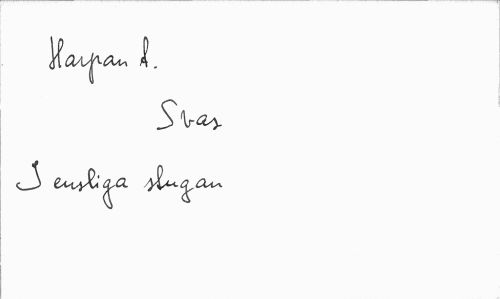 Harpan A.
Svar
I ensliga stugan